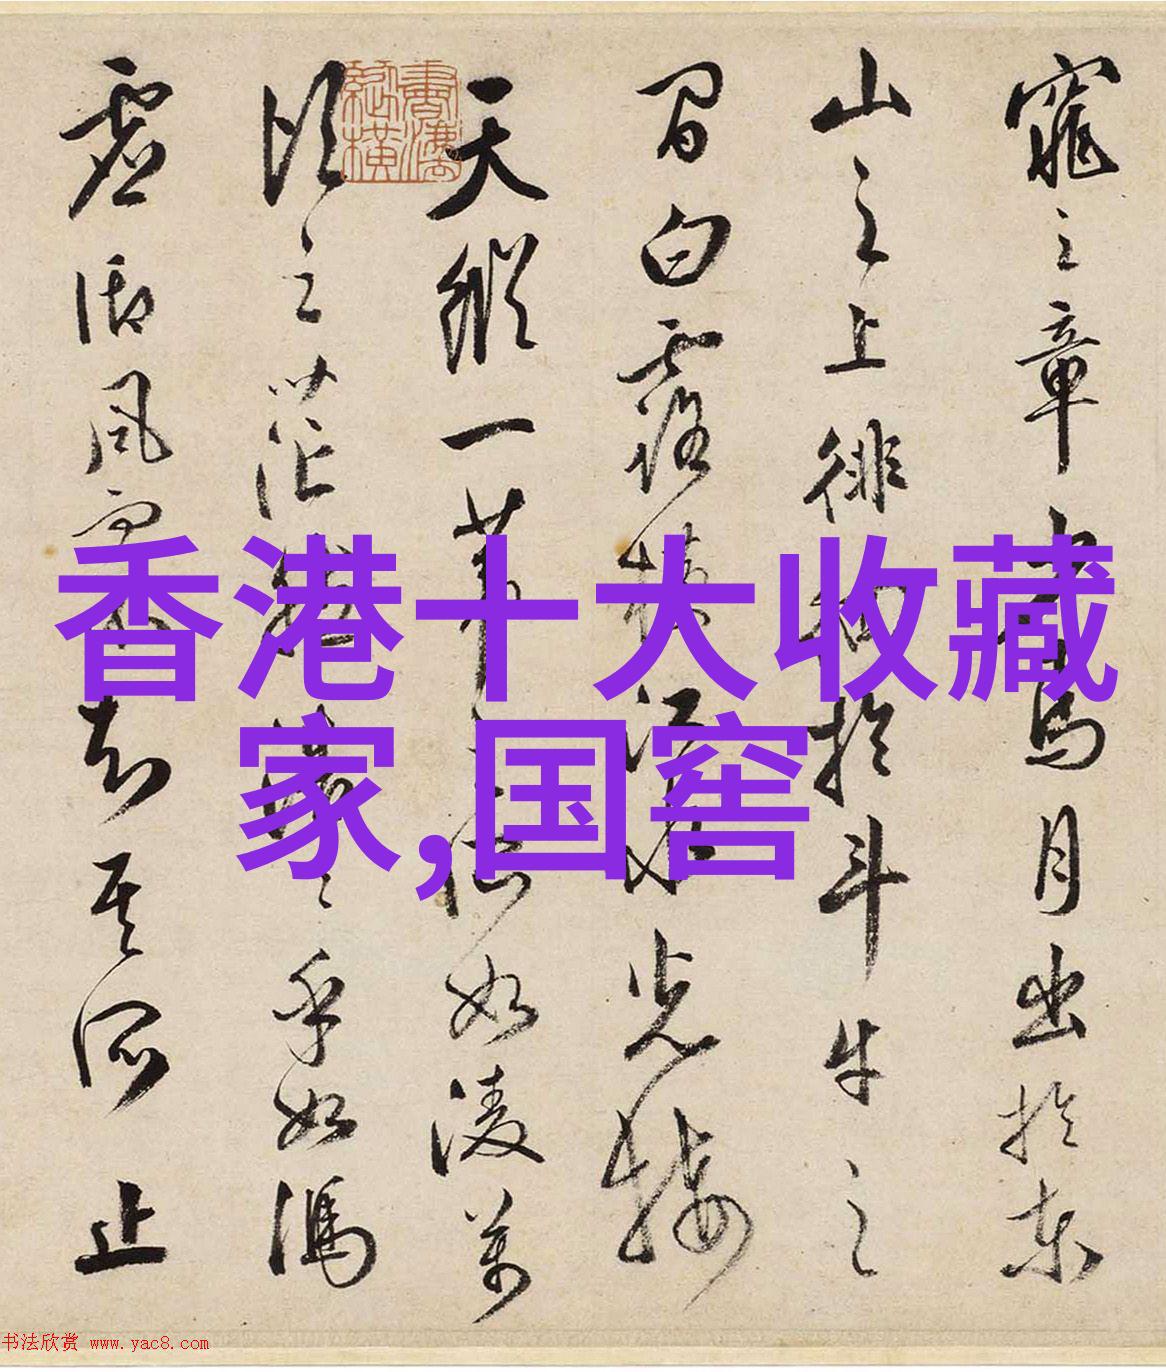 香港十大收藏
家,国窖
窕之章少焉月出於東
山之上徘徊於斗牛之
間白露橫江水光接
天縱一葦之所如淩萬
頃之茫然浩々乎如馮
虛御風而不知其所止
书法欣赏 www.yac8.com